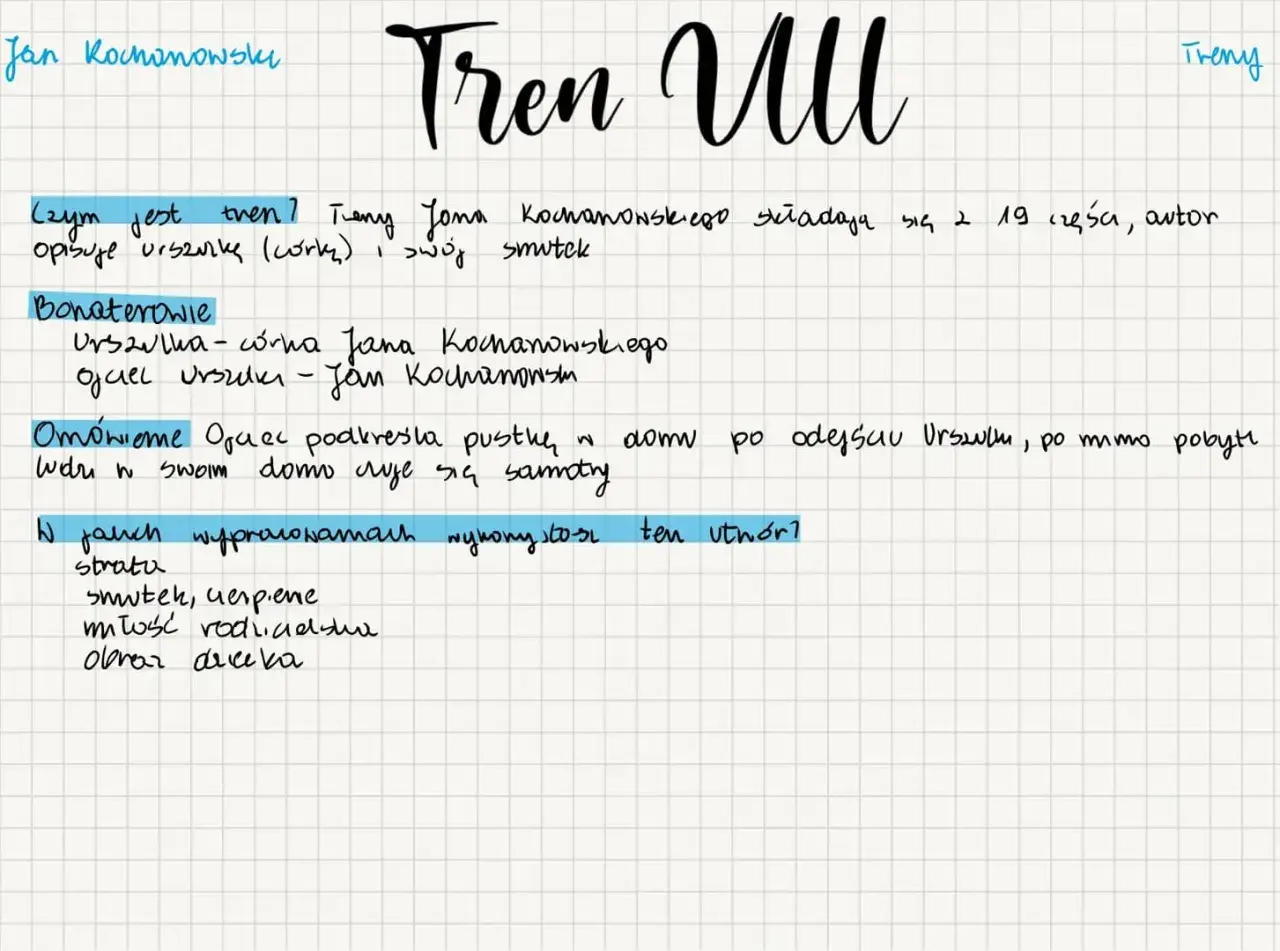 Jan Kochanowski
Tren VIII
Treny
Czym jest tren? Treny Jana Kochanowskiego składają się z 19 części, autor
opisuje Urszulkę (córkę) i swój smutek
Bohaterowie
Urszulka - córka Jana Kochanowskiego
Ojciec Urszulki - Jan Kochanowski
Omówienie Ojciec podkreśla pustkę w domu po odejściu Urszulki, po mimo pobytu
ludzi w swoim domu czuje się samotny
W jakich wypracowaniach wykorzystasz ten utwór?
strata
smutek, cierpienie
miłość rodzicielska
obraz dziecka